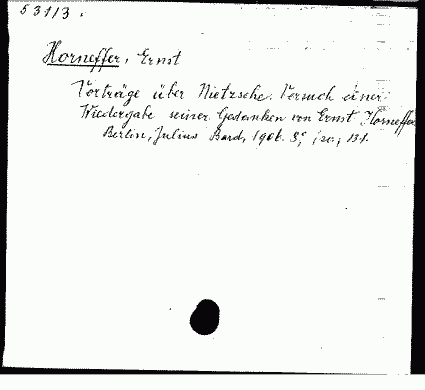 53113.
Horneffer, Ernst
Vorträge über Nietzsche. Versuch einer
Wiedergabe seiner Gedanken von Ernst Horneffer
Berlin, Julius Bard, 1906. 8°,